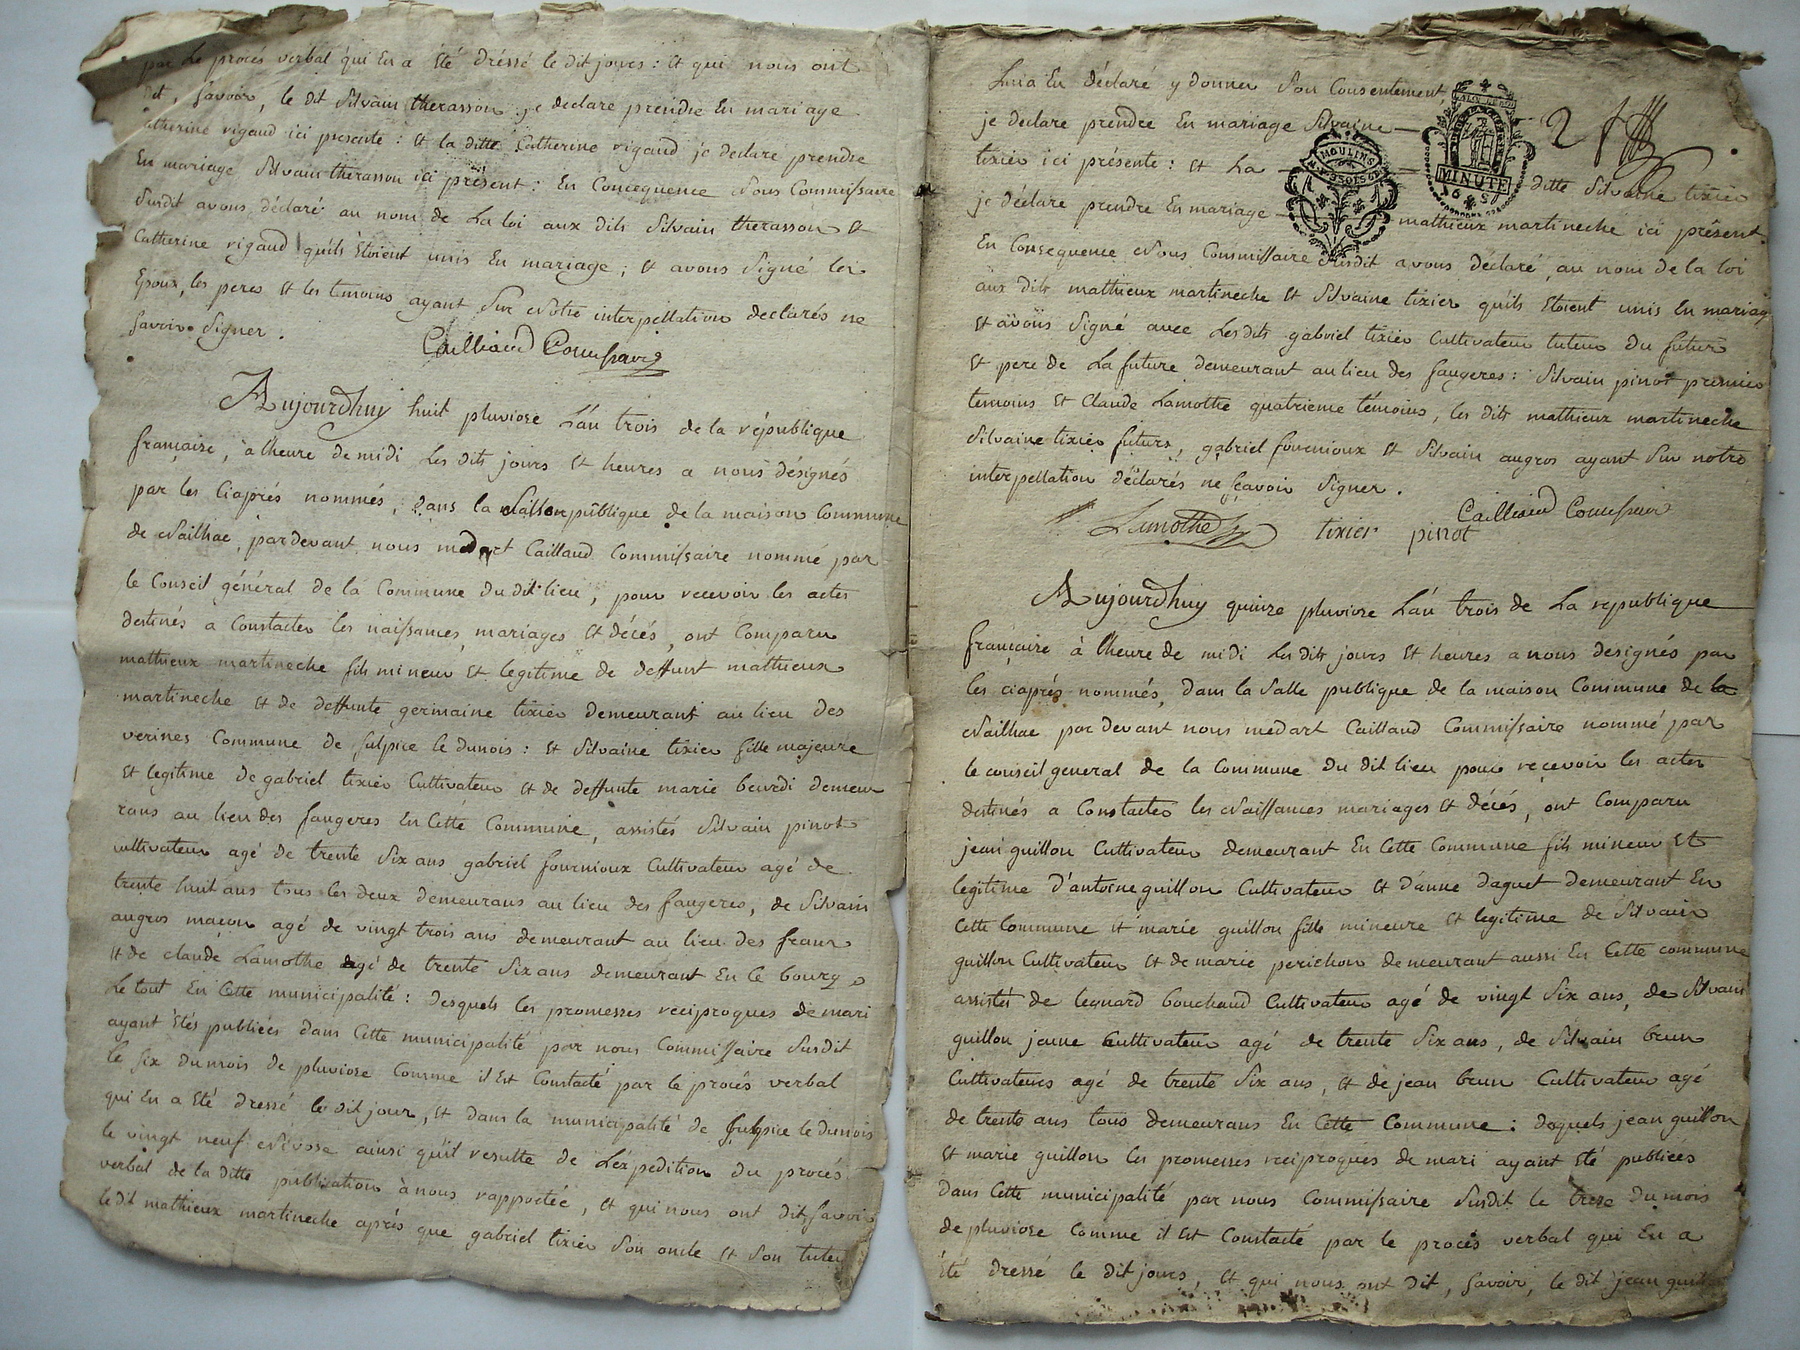 par le procés verbal qui En a Eté dréssé le dit jours : Et qui nous ont
dit, savoir, le dit Silvain therasson je declare prendre En mariage
catherine rigaud ici presente : Et la ditte Catherine rigaud je declare prendre
En mariage Silvain therasson ici présent : En Concequence Nous Commissaire
susdit avons déclaré au nom de La loi aux dits Silvain therasson Et
Catherine rigaud quils Etoient unis En mariage ; Et avons Signé les
Epoux, les peres Et les temoins ayant Sur Notre interpellation declarés ne
savoir Signer .
Cailliaud
Aujourdhuy huit pluviose L'an trois de la république
française, à lheure de midi Les dits jours Et heures a nous désignés
par les Ciaprés nommés, dans la Salle publique de la maison Commune
de Nailhac, pardevant nous medart Caillaud Commissaire nommé par
le Conseil général de la Commune du dit lieu, pour recevoir les actes
destinés a Constacter les naissances, mariages Et décés, ont Comparu
mathieux martineche fils mineur Et legitime de deffunt mathieux
martineche Et de deffunte germaine tixier demeurant au lieu des
verines Commune de sulpice le dunois : Et Silvaine tixier fille majeure
Et legitime de gabriel tixier Cultivateur Et de deffunte marie beurdi demeu
rans au lieu des faugeres En Cette Commune, assistés Silvain pinot
cultivateur agé de trente Six ans gabriel fournioux Cultivateur agé de
trente huit ans tous les deux demeurans au lieu des faugeres, de Silvain
augros maçon agé de vingt trois ans demeurant au lieu des
Et de claude Lamothe agé de trente Six ans demeurant En Ce bourg
Le tout En Cette municipalité : desquels les promesses reciproques de mari
ayant Etés publiées dans Cette municipalité par nous Commissaire Susdit
le six du mois de pluviose Comme il Est Constacté par le procés verbal
qui En a Eté dressé le dit jour, Et dans la municipalité de sulpice le dunois
le vingt neuf Nivose ainsi qu'il resulte de L'expedition du procés
verbal de la ditte publication à nous rapportée, Et qui nous ont dit, savoir
le dit mathieux martineche aprés que gabriel tixier Son oncle Et Son tuteu
Lui a En déclaré y donner Son Consentement,
je declare prendre En mariage Silvaine
2
tixier ici présente : Et La ditte Silvaine tixier
MOULINS
MINUTE
je déclare prendre En mariage mathieux martineche ici présent.
En Consequence Nous Commissaire susdit avons déclaré, au nom de la loi
aux dits mathieux martineche Et Silvaine tixier qu'ils Etoient unis En mariag
Et avons Signé avec Lesdits gabriel tixier Cultivateur tuteur du futur
Et pere de La future demeurant au lieu des faugeres : Silvain pinot premier
temoins Et Claude Lamothe quatrieme témoins, les dits mathieux martineche
Silvaine tixier futurs, gabriel fournioux Et Silvain augros ayant Sur notre
interpellation déclarés ne sçavoir Signer .
Cailliaud
Lamothe tixier pinot
Aujourdhuy quinze pluviose L'an trois de La republique
française à lheure de midi Les dits jours Et heures a nous designés par
les ciaprés nommés, dans la Salle publique de la maison Commune de la
Nailhac par devant nous medart Caillaud Commissaire nommé par
le conseil general de la Commune du dit lieu pour reçevoir les actes
destinés a Constacter les Naissances mariages Et décés, ont Comparu
jean guillon Cultivateur demeurant En Cette Commune fils mineur Et
legitime d'antoine guillon Cultivateur Et d'anne daguet demeurant En
Cette Commune Et marie guillon fille mineure Et legitime de Silvain
guillon Cultivateur Et de marie perichon demeurant aussi En Cette commune
assistés de leonard bouchaud Cultivateur agé de vingt Six ans, de Silvain
guillon jeune Cultivateur agé de trente Six ans, de Silvain brun
Cultivateurs agé de trente Six ans, Et de jean brun Cultivateur agé
de trente ans tous demeurans En Cette Commune : desquels jean guillon
Et marie guillon les promesses reciproques de mari ayant Eté publiées
dans Cette municipalité par nous Commissaire Susdit le treze du mois
de pluviose Comme il Est Constacté par le procés verbal qui En a
Eté dressé le dit jours, Et qui nous ont dit, savoir, le dit jean guil